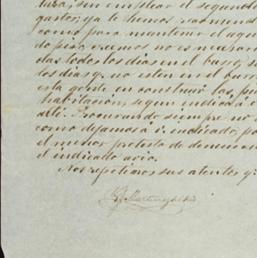 tura, sin emplear el segundo
gastos; ya le hemos recomend
como para mantener el agua
do piso creemos no es necesar
das todos los dias en el barro, si
los dias q. no esten en el barr
esta gente en construir las, pu
habitacion, segun indicará e
allí. Procurando siempre no
como dejamos á V. indicado, po
el menor pretesto de denuncia
el indicado avio.
Nos repetimos sus atentos q